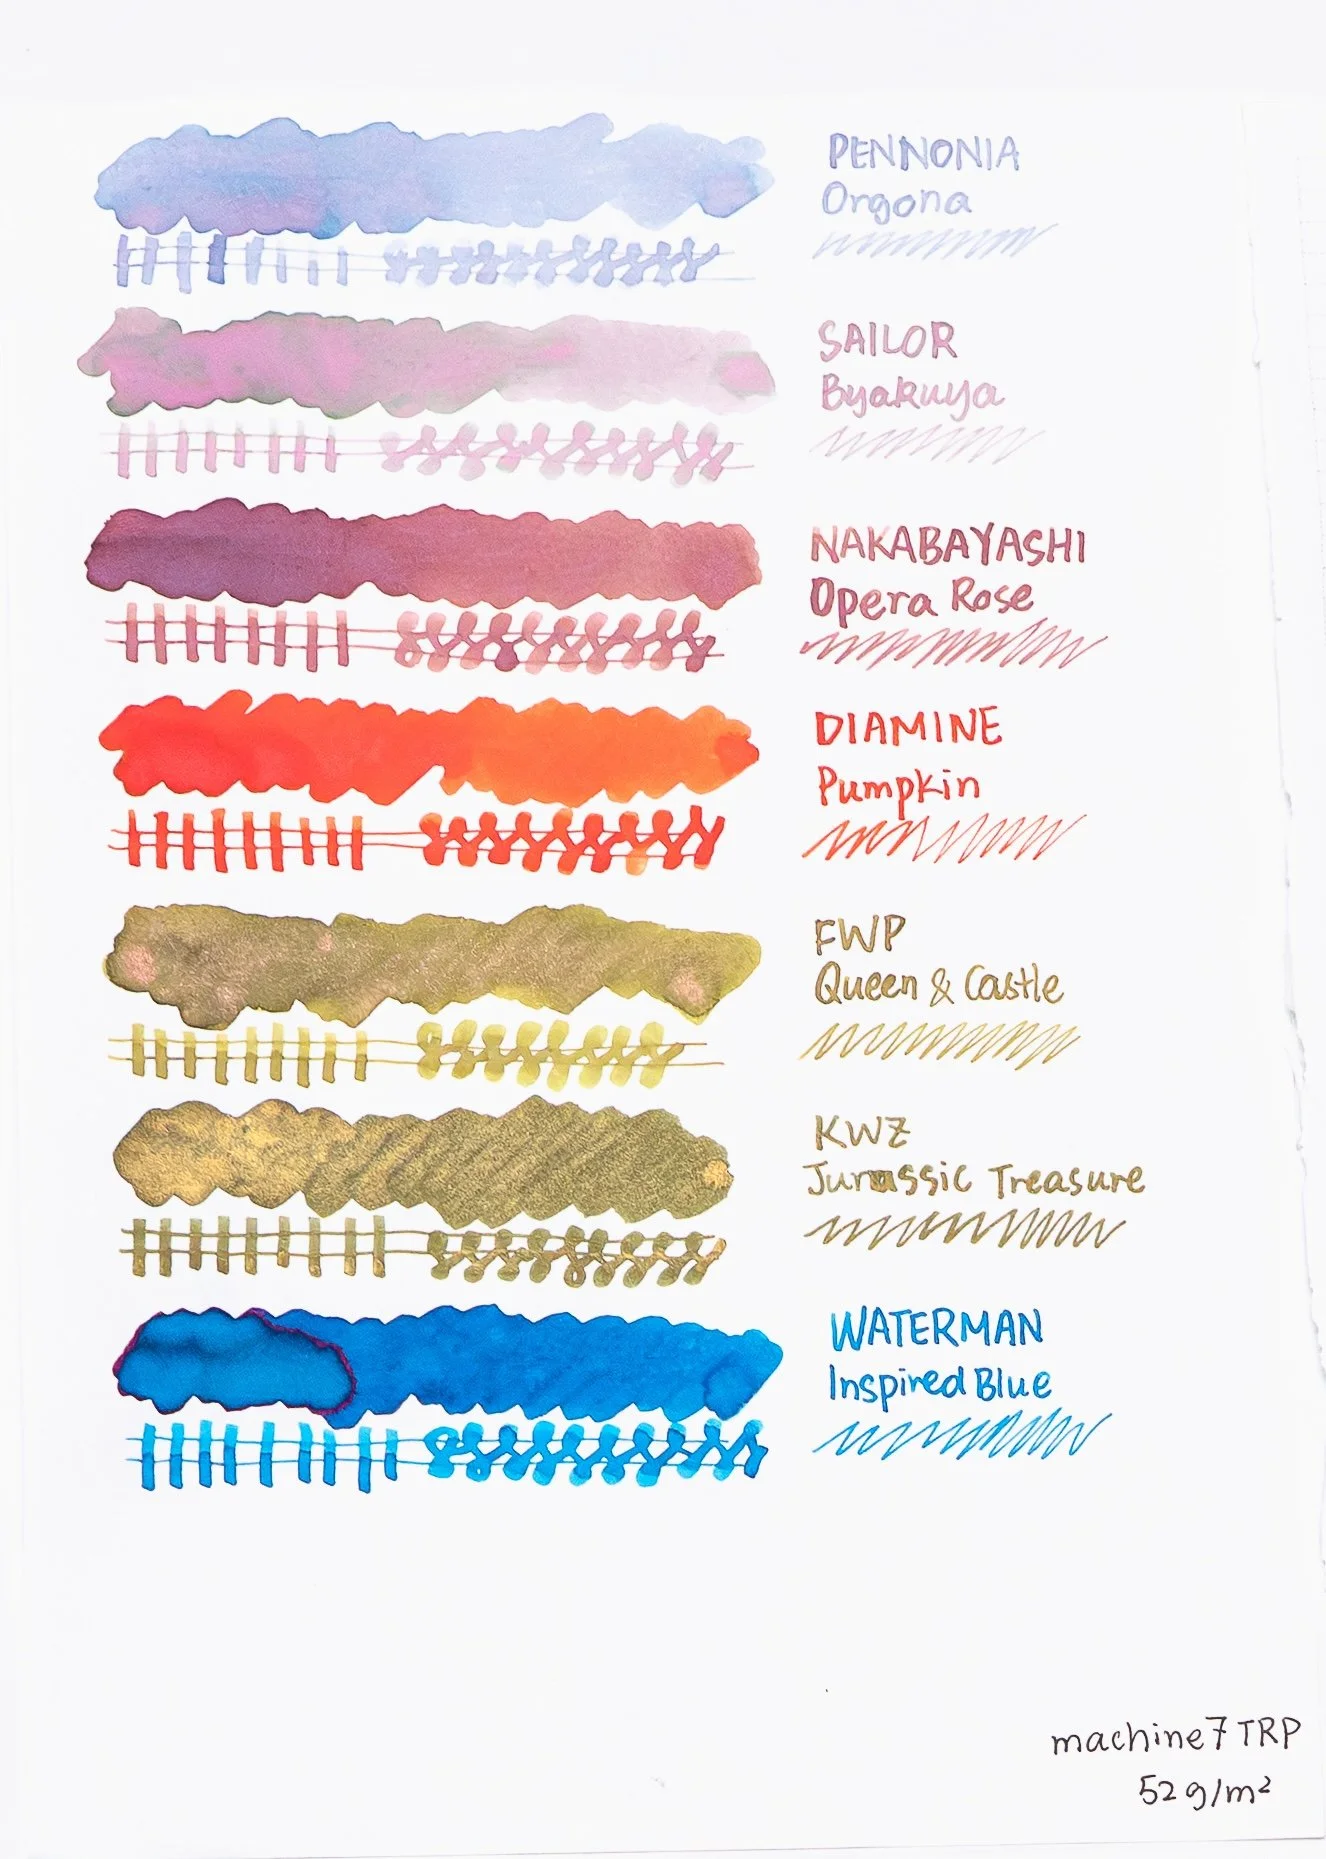 PENNONIA
Orgona
SAILOR
Byakuya
NAKABAYASHI
Opera Rose
DIAMINE
Pumpkin
FWP
Queen & Castle
KWZ
Jurassic Treasure
WATERMAN
Inspired Blue
machine7 TRP
52 g/m²